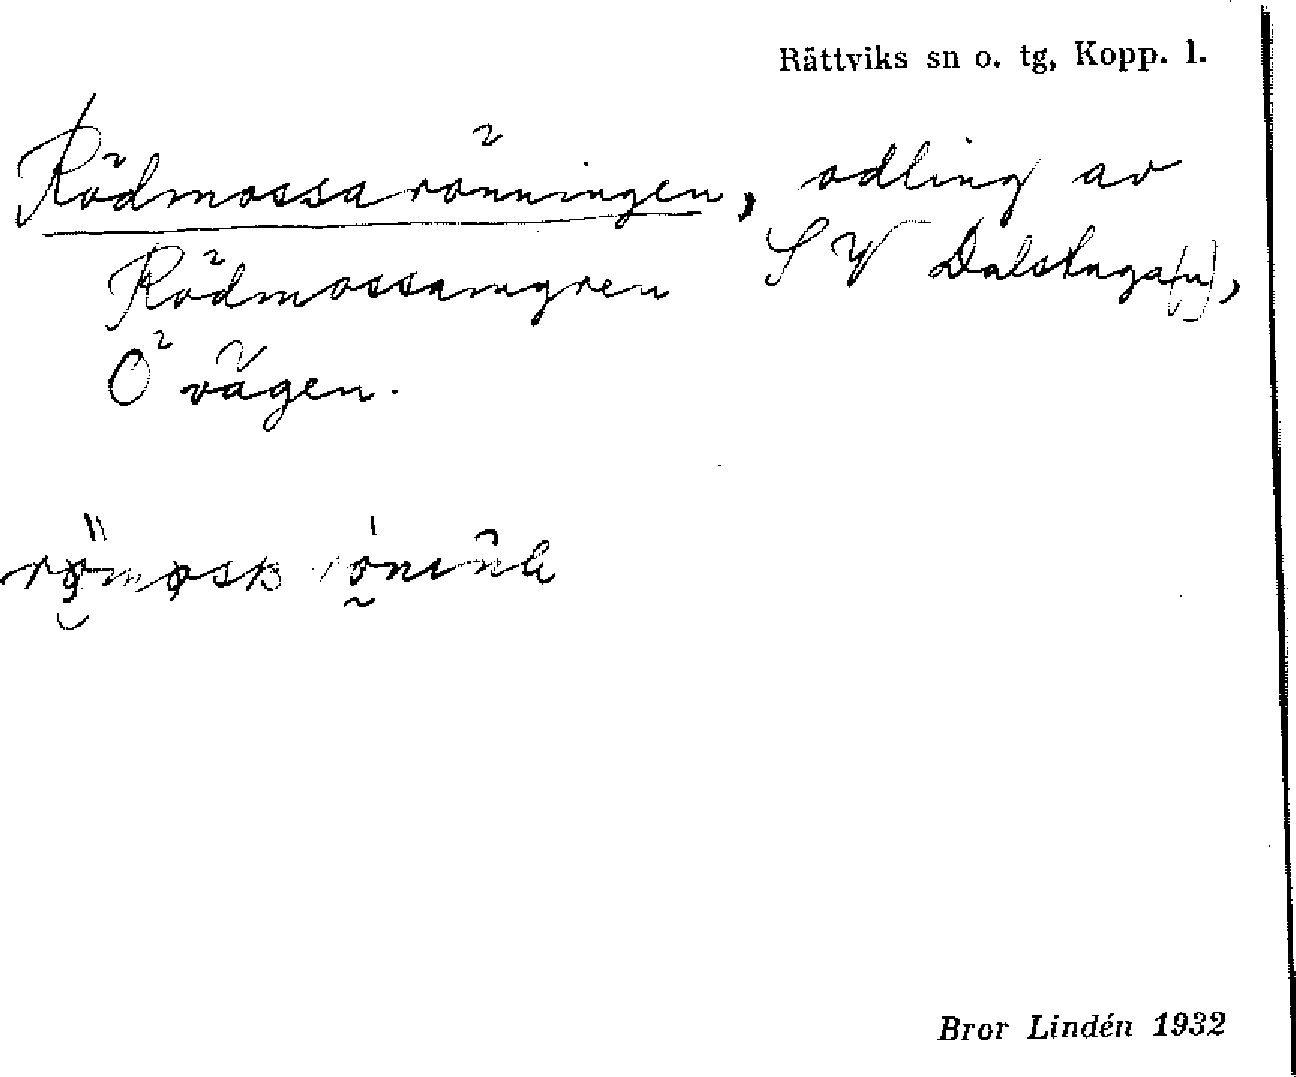 Rättviks sn o. tg, Kopp. l.
Rödmossarönningen, odling av
Rödmossamyren S V Dalstuga(n),
Ö vägen.
Bror Lindén 1932